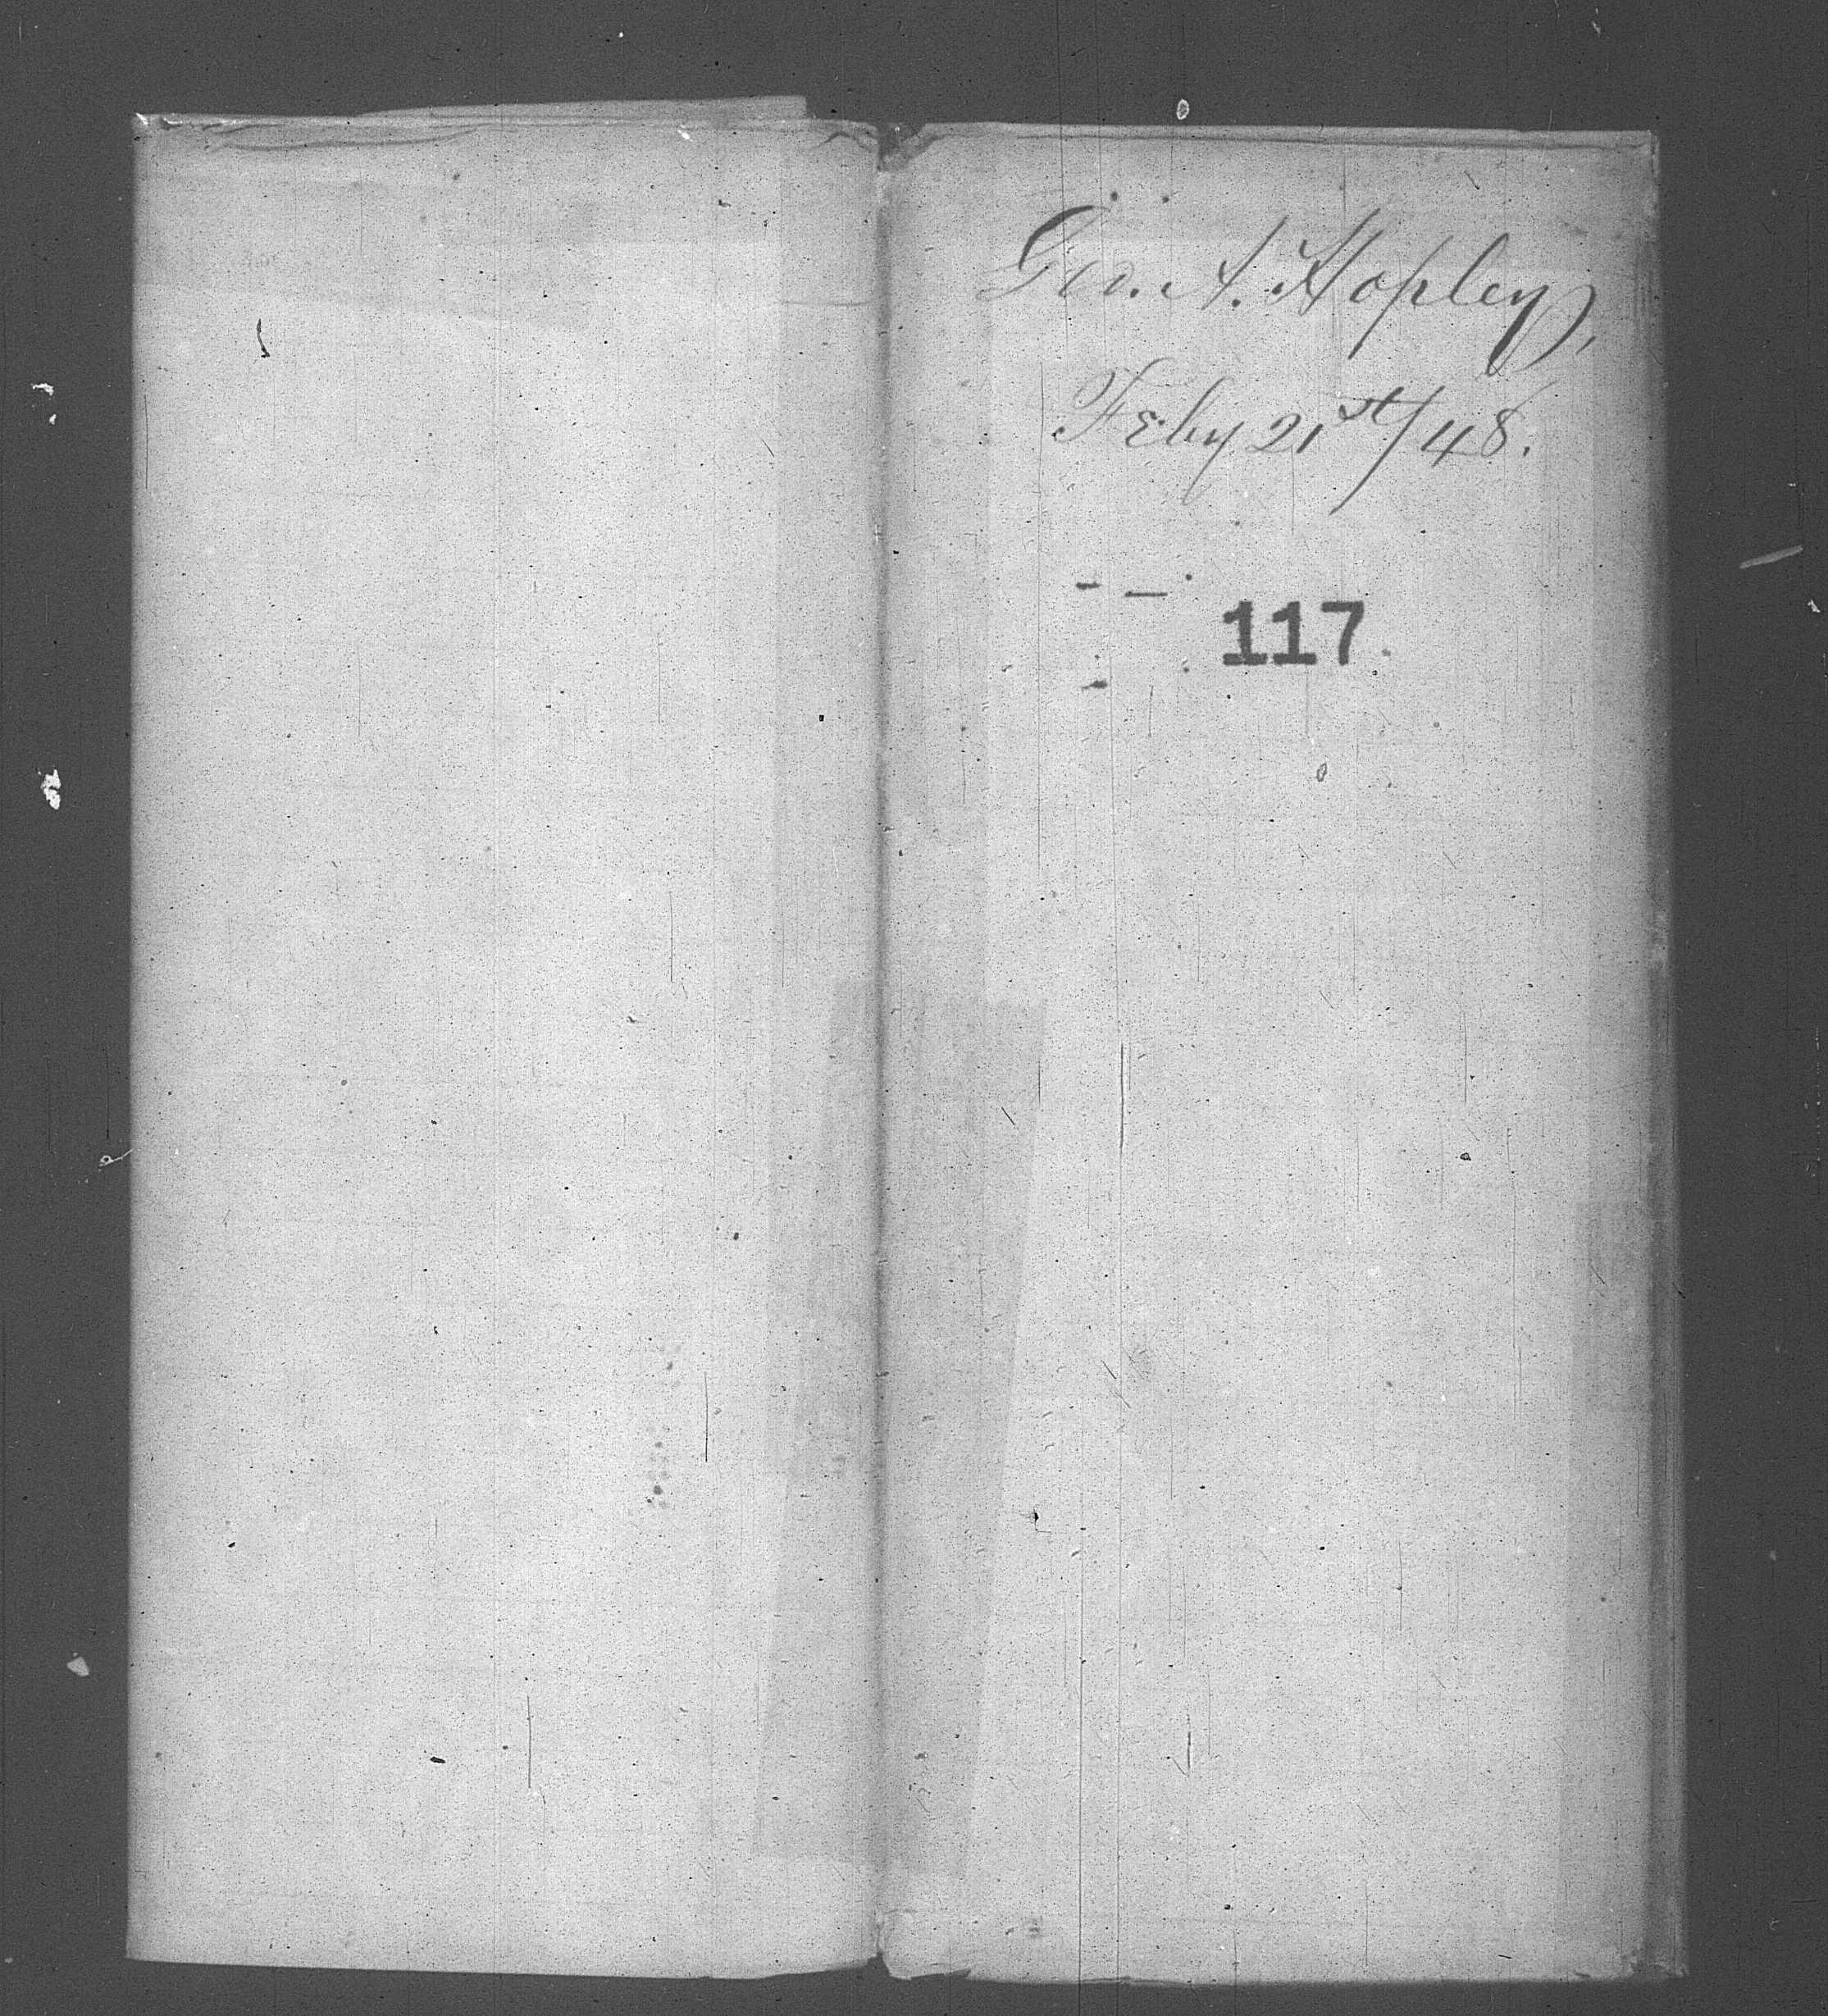 Geo. A. Hopley,
Feby 21st/48.
117